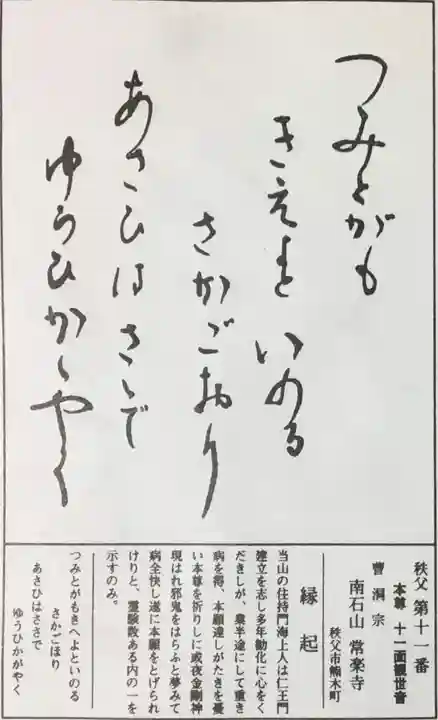 つみとがも
きえよと いのる
さかごおり
あさひは さゝで
ゆうひかゞやく
秩父 第十一番
本尊 十一面観世音
曹洞宗
南石山 常楽寺
秩父市熊木町
縁起
当山の住持門海上人は仁王門
建立を志し多年勧化に心をく
だきしが、業半途にして重き
病を得、本願達しがたきを憂
い本尊を祈りしに或夜金剛神
現はれ邪鬼をはらふと夢みて
病全快し遂に本願をとげられ
けりと、霊験数ある内の一を
示すのみ。
つみとがもきへよといのる
さかごほり
あさひはささで
ゆうひかがやく